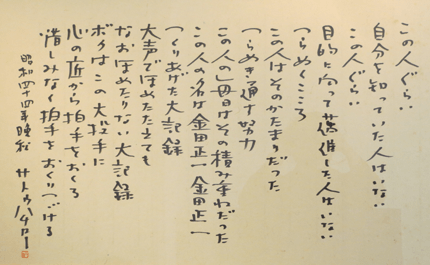 この人ぐらい
自分を知っていた人はいない
この人ぐらい
目的に向って驀進した人はいない
つらぬくこころ
この人はそのかたまりだった
つらぬき通す努力
この人の毎日はその積み重ねだった
この人の名は金田正一 金田正一
つくりあげた大記録
大声でほめたたえても
なおほめたりない大記録
ボクはこの大投手に
心の底から拍手をおくる
惜しみなく拍手をおくりつづける
昭和四十四年晩秋 サトウハチロー